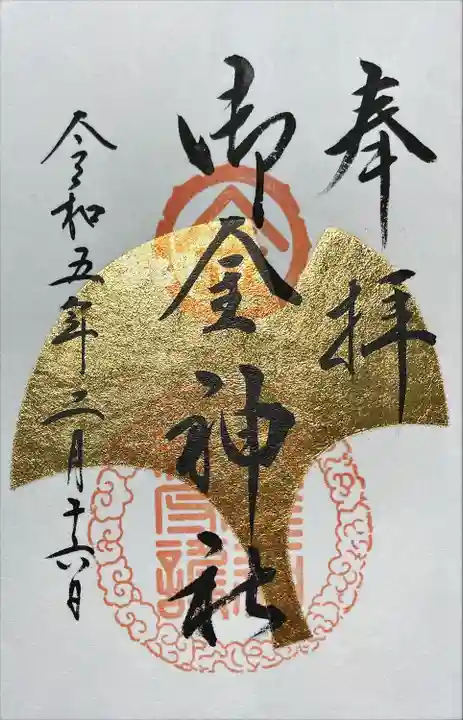 奉拝
御金神社
令和五年二月十六日